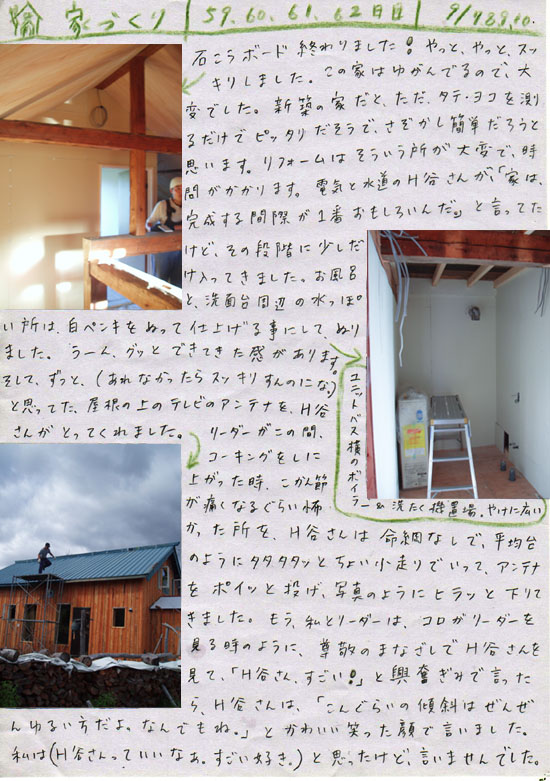 家づくり 59.60.61.62日目 9/7.8.9.10.
石こうボード終わりました！やっと、やっと、スッ
キリしました。この家はゆがんでるので、大
変でした。新築の家だと、ただ、タテ・ヨコを測
るだけでピッタリだそうで、さぞかし簡単だろうと
思います。リフォームはそういう所が大変で、時
間がかかります。電気と水道のH谷さんが、「家は、
完成する間際が1番おもしろいんだ。」と言ってた
けど、その段階に少しだ
け入ってきました。お風呂
と、洗面台周辺の水っぽ
い所は、白ペンキをぬって仕上げる事にして、ぬり
ました。うーん、グッとできてきた感があります。
そして、ずっと、(あれなかったらスッキリすんのにな)
と思ってた、屋根の上のテレビのアンテナを、H谷
さんがとってくれました。
リーダーがこの間、
コーキングをしに
上がった時、こかん節
が痛くなるぐらい怖
かった所を、H谷さんは命綱なしで、平均台
のようにタタタタンとちょい小走りでいって、アンテナ
をポイッと投げ、写真のようにヒラッと下りて
きました。もう、私とリーダーは、コロがリーダーを
見る時のように、尊敬のまなざしでH谷さんを
見て、「H谷さん、すごい！」と興奮ぎみで言った
ら、H谷さんは、「こんぐらいの傾斜はぜんぜ
んゆるい方だよ。なんでもね。」とかわいい笑った顔で言いました。
私は(H谷さんっていいなぁ。すごい好き。)と思ったけど、言いませんでした。
ユニットバス横のボイラー&洗たく機置場、やけに広い